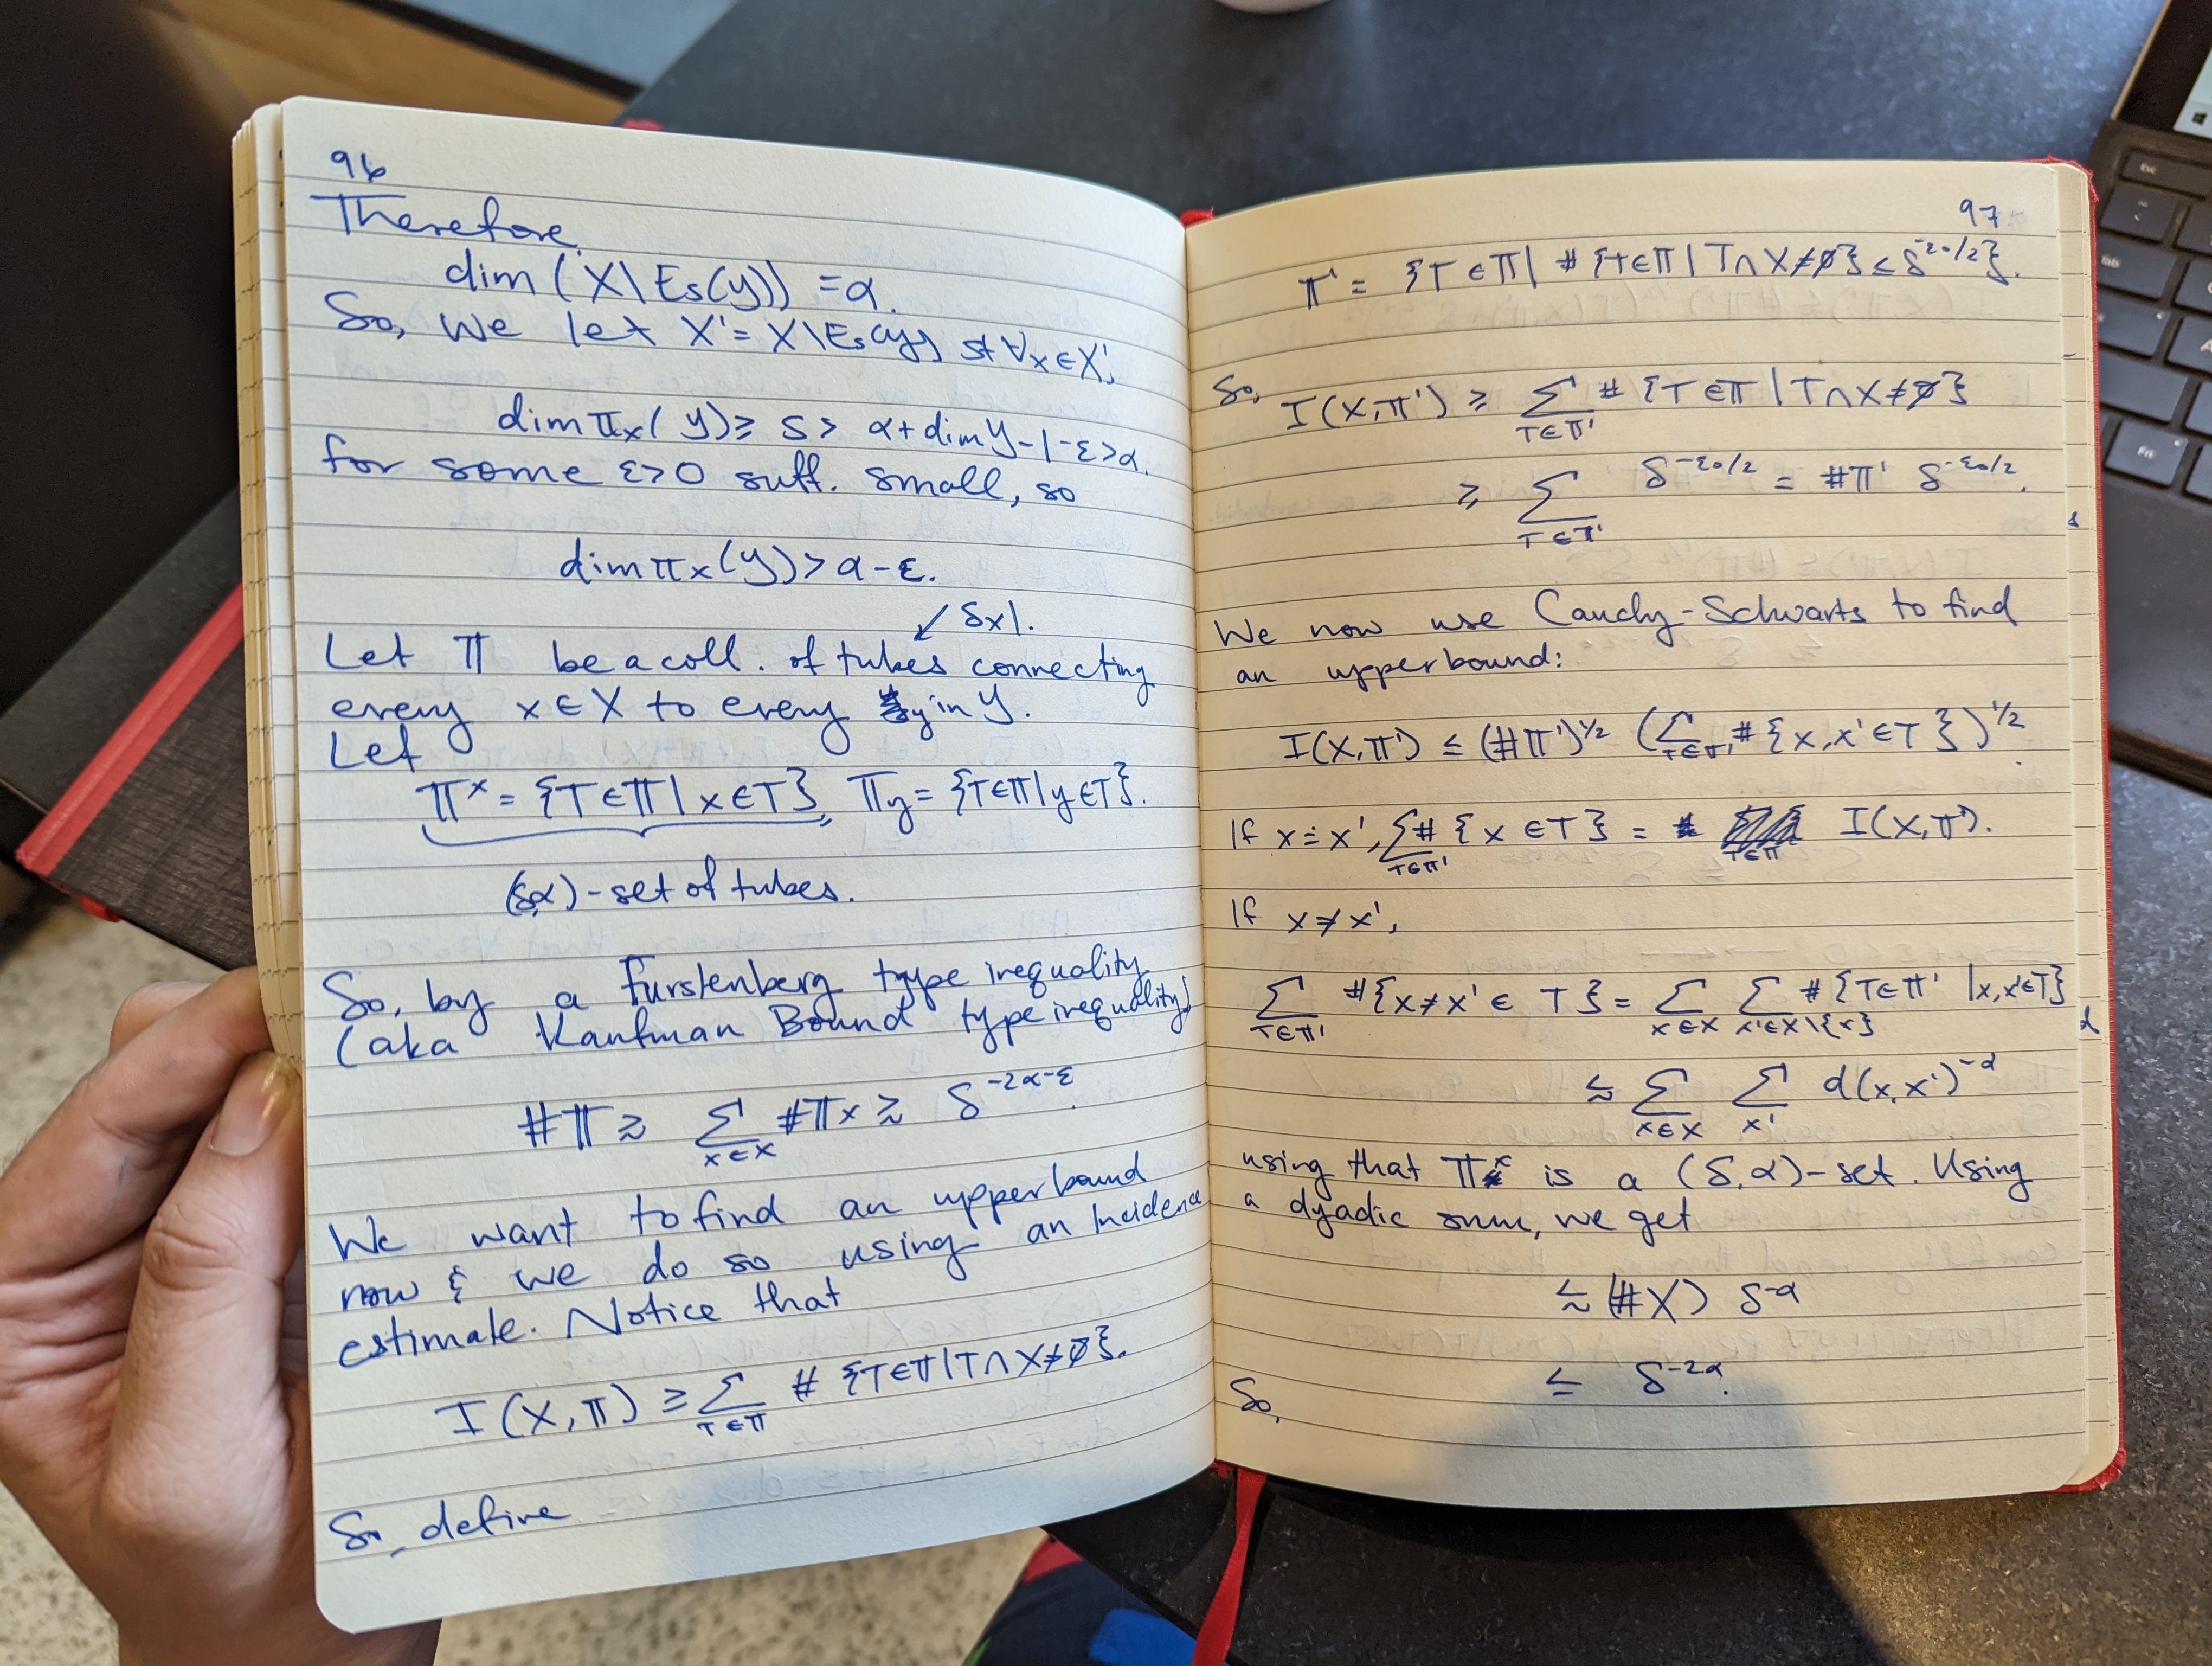 96
Therefore,
dim (X\Es(y)) = α.
So, we let X' = X\Es(y) st ∀x∈X',
dim πx(y) ≥ s > α + dim y - 1 - ε > α.
for some ε>0 suff. small, so
dim πx(y) > α - ε.
↙ δx1.
Let 𝕋 be a coll. of tubes connecting
every x ∈ X to every y in Y.
Let
𝕋ˣ = {T ∈ 𝕋 | x ∈ T}, 𝕋y = {T∈𝕋 | y ∈ T}.
(δ,α)-set of tubes.
So, by a Furstenberg type inequality
(aka Kaufman Bound type inequality)
#𝕋 ≳ Σ_{x∈X} #𝕋x ≳ δ^{-2α-ε}.
We want to find an upperbound
now & we do so using an Incidence
estimate. Notice that
I(X,𝕋) ≥ Σ_{T∈𝕋} # {T∈𝕋 | T∩X≠∅}.
So, define
97
𝕋' = {T ∈ 𝕋 | # {T∈𝕋 | T∩X≠∅} ≤ δ^{-2•/2}}.
So, I(X,𝕋') ≥ Σ_{T∈𝕋'} # {T ∈ 𝕋 | T∩X≠∅}
≥ Σ_{T∈𝕋'} δ^{-ε₀/2} = #𝕋' δ^{-ε₀/2}.
We now use Cauchy-Schwarts to find
an upperbound:
I(X,𝕋') ≤ (#𝕋')^{1/2} (Σ_{T∈𝕋'} # {x,x'∈T})^{1/2}.
If x = x', Σ_{T∈𝕋'} # {x ∈ T} = I(X,𝕋').
If x ≠ x',
Σ_{T∈𝕋'} #{x≠x' ∈ T} = Σ_{x∈X} Σ_{x'∈X\{x}} # {T∈𝕋' | x,x'∈T}
≲ Σ_{x∈X} Σ_{x'} d(x,x')^{-α}
using that 𝕋ˣ is a (δ,α)-set. Using
a dyadic sum, we get
≲ (#X) δ^{-α}
≤ δ^{-2α}.
So,